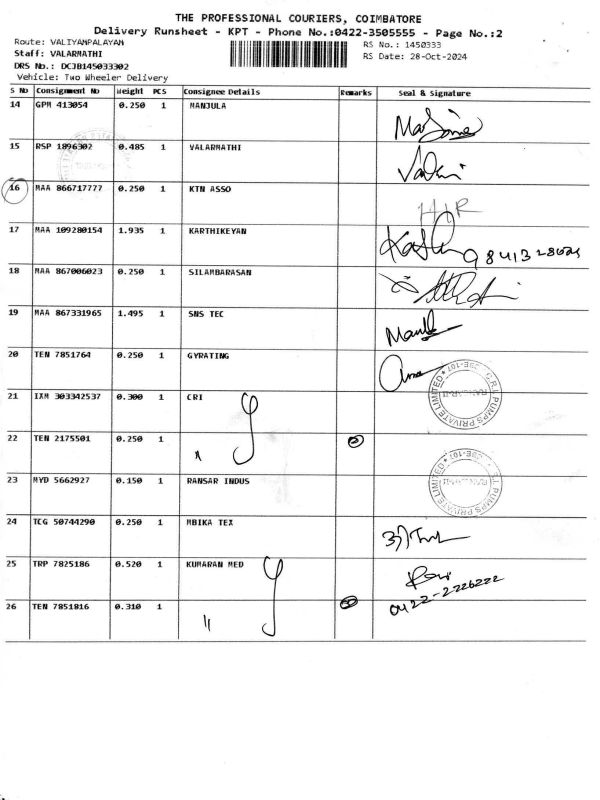 THE PROFESSIONAL COURIERS, COIMBATORE
Delivery Runsheet - KPT - Phone No.:0422-3505555 - Page No.:2
Route: VALIYAMPALAYAM
RS No.: 1450333
Staff: VALARMATHI
RS Date: 28-Oct-2024
DRS No.: DCJB145033302
Vehicle: Two Wheeler Delivery
S No Consignment No Weight PCS Consignee Details Remarks Seal & Signature
14 GPM 413054 0.250 1 MANJULA
15 RSP 1896302 0.485 1 VALARMATHI
16 MAA 866717777 0.250 1 KTN ASSO
17 MAA 109280154 1.935 1 KARTHIKEYAN
18 MAA 867006023 0.250 1 SILAMBARASAN
19 MAA 867331965 1.495 1 SNS TEC
20 TEN 7851764 0.250 1 GYRATING
21 IXM 303342537 0.300 1 CRI
C.R.I. PUMPS PRIVATE LIMITED
22 TEN 2175501 0.250 1 "
23 MYD 5662927 0.150 1 RANSAR INDUS
C.R.I. PUMPS PRIVATE LIMITED
24 TCG 50744290 0.250 1 MBIKA TEX
25 TRP 7825186 0.520 1 KUMARAN MED
0422-2226222
26 TEN 7851816 0.310 1 "